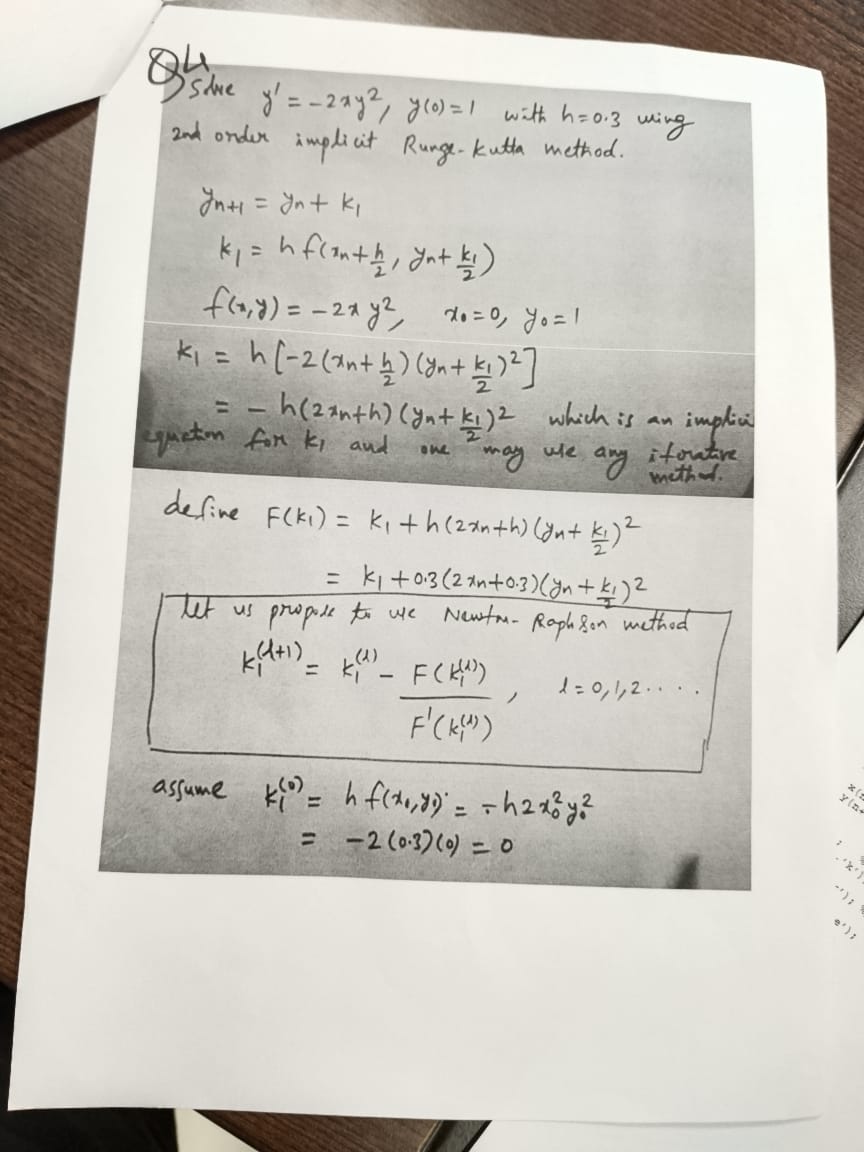 Q4
Solve y' = -2xy², y(0)=1 with h=0.3 using
2nd order implicit Runge-Kutta method.
yn+1 = yn + k₁
k₁ = h f(xn + h/2, yn + k₁/2)
f(x,y) = -2x y², x₀=0, y₀=1
k₁ = h[-2(xn + h/2)(yn + k₁/2)²]
= -h(2xn+h)(yn + k₁/2)² which is an implici
equation for k₁ and one may use any iterative
method.
define F(k₁) = k₁ + h(2xn+h)(yn + k₁/2)²
= k₁ + 0.3(2xn+0.3)(yn + k₁/2)²
Let us propose to use Newton-Raphson method
k₁^(l+1) = k₁^(l) - F(k₁^(l))/F'(k₁^(l)), l = 0,1,2.....
assume k₁^(0) = h f(x₀,y₀) = -h2x₀²y₀²
= -2(0.3)(0) = 0
');
e');